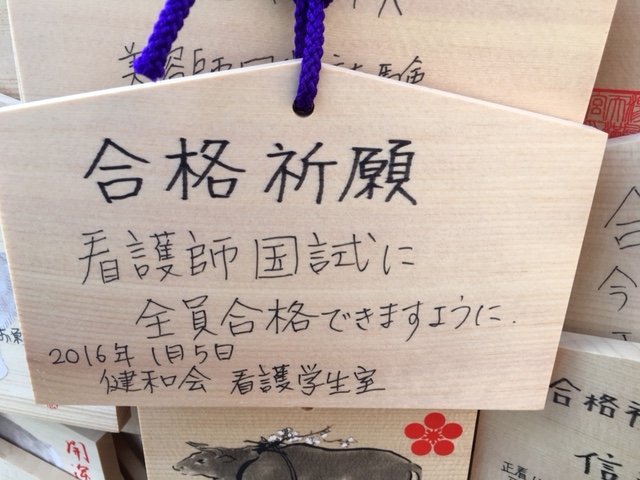 美容師国家試験
合格祈願
看護師国試に
全員合格できますように.
2016年1月5日
健和会 看護学生室
合格祈
開運